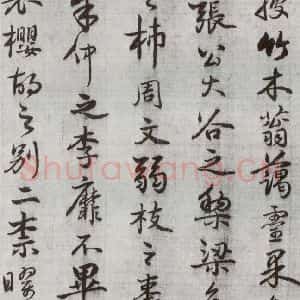 披竹木蓊藹靈果
張公大谷之棃梁
柿周文弱枝之棗
朱仲之李靡不畢
櫻胡之別二柰曜
Shufawang.Cn